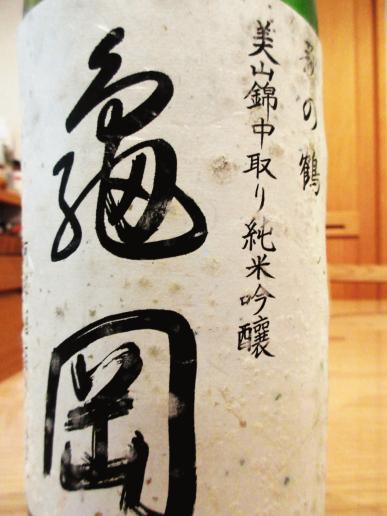 萩の鶴
美山錦中取り純米吟醸
亀岡